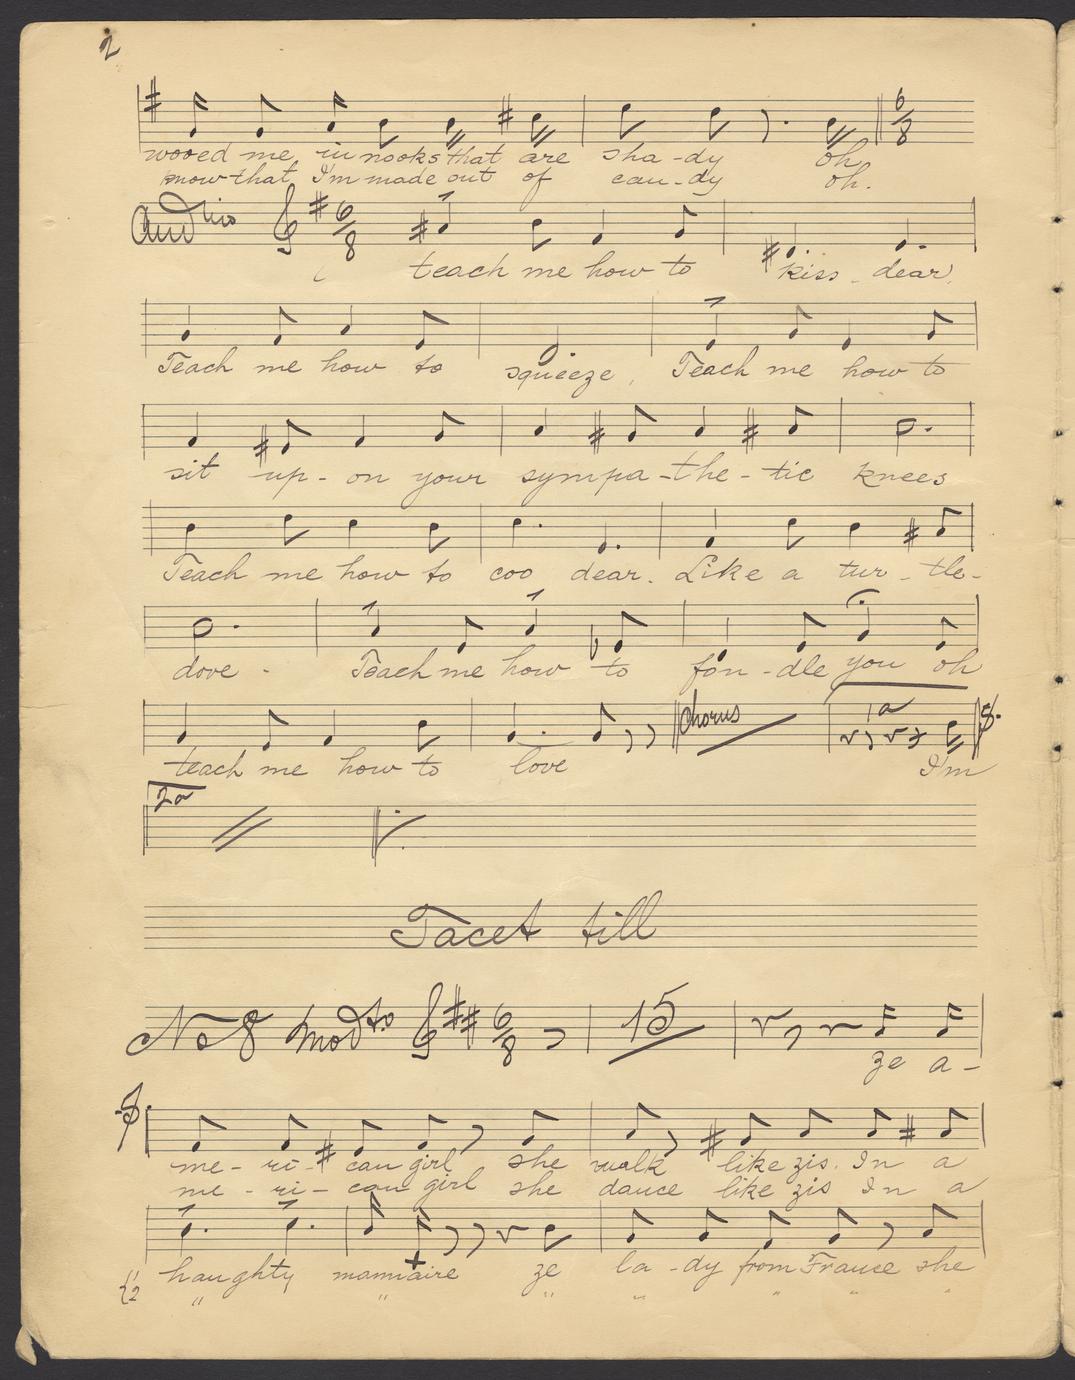 2
wooed me in nooks that are sha-dy oh
know that I'm made out of can-dy oh.
6/8
Andtino 6/8
teach me how to kiss - dear,
Teach me how to squeeze, Teach me how to
sit up - on your sympa-the-tic knees
Teach me how to coo dear. Like a tur-tle-
dove - Teach me how to fon-dle you oh
Chorus 1a
teach me how to love I'm
2a
Tacet till
No 8 Modto 6/8 15
ze a-
me-ri-can girl she walk like zis. In a
me-ri-can girl she dance like zis In a
haughty manniaire ze la-dy from France she
1 2 " " " " " " "